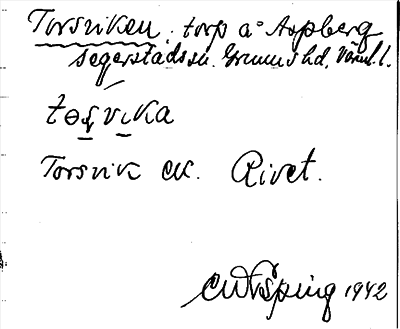 Torsviken. torp å Aspberg
Segerstads sn. Grums hd. Värml. l.
tɵʂvika
Torsvik ek. Rivet.
1942